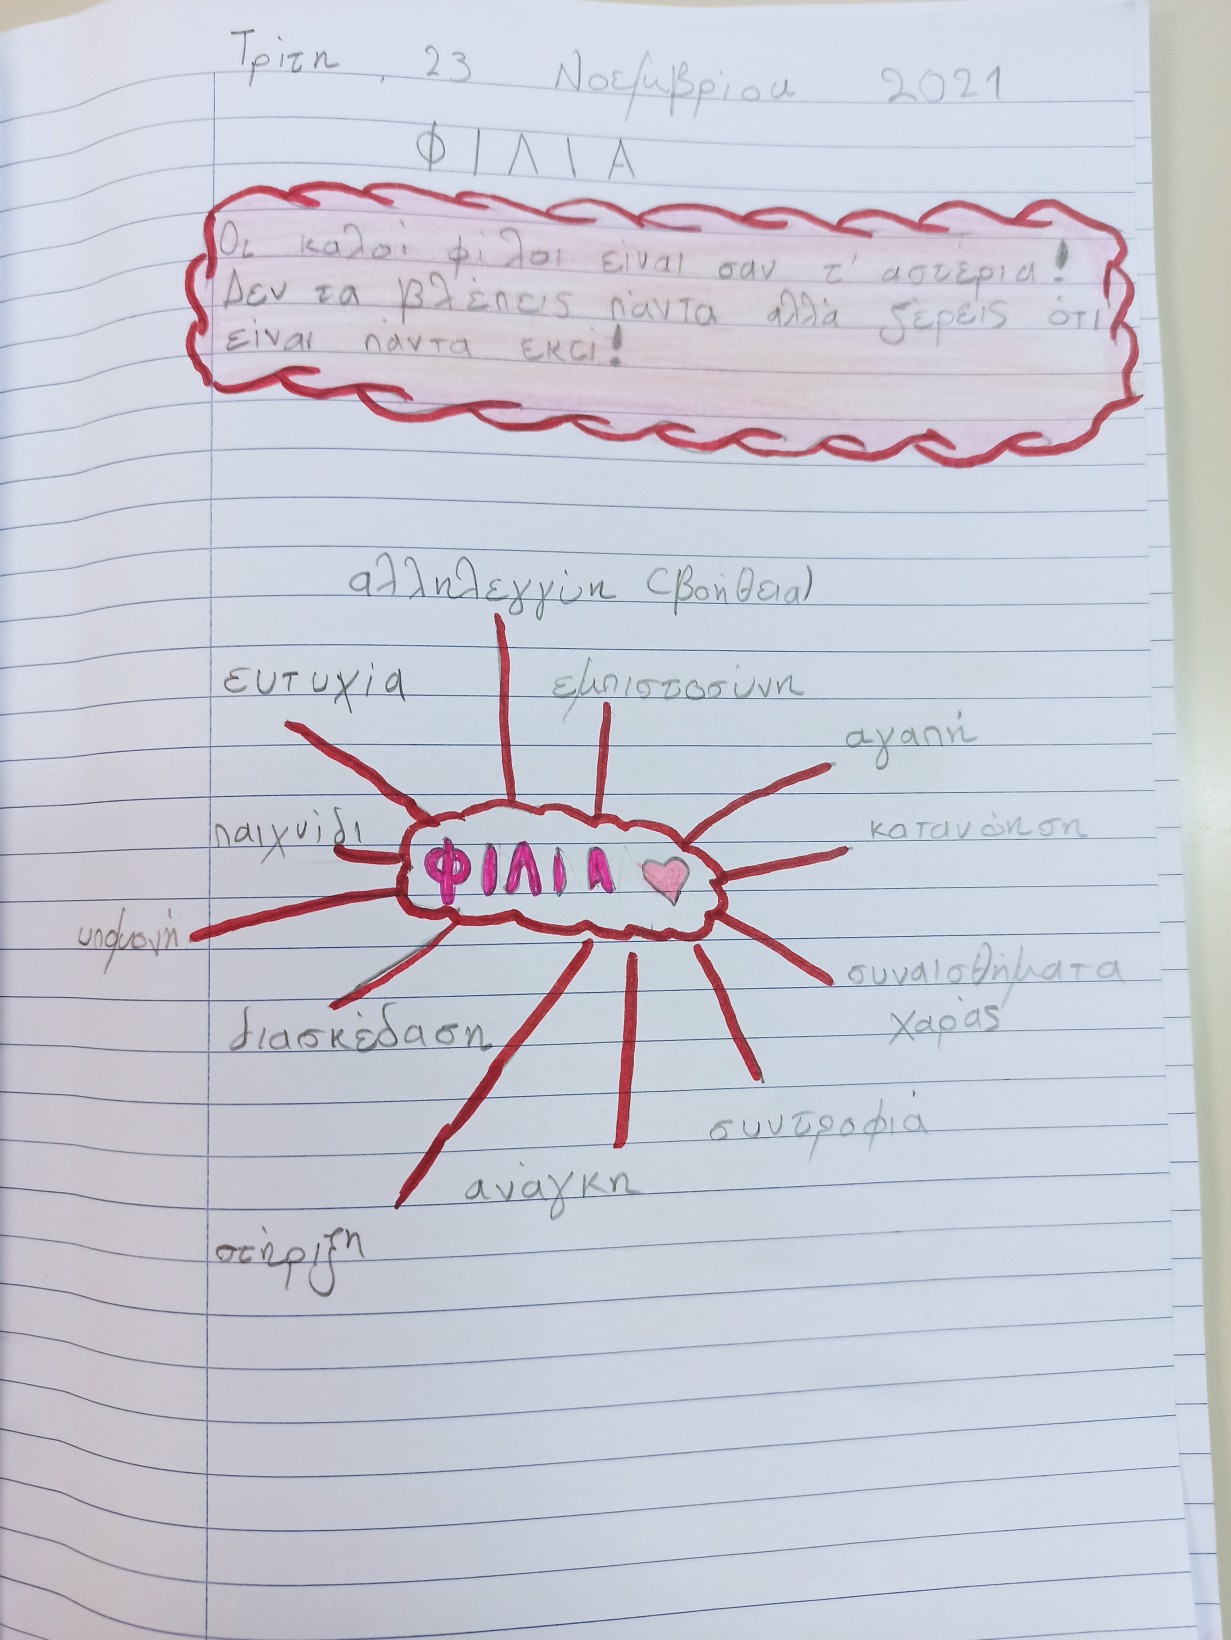 Τρίτη, 23 Νοεμβρίου 2021
ΦΙΛΙΑ
Οι καλοί φίλοι είναι σαν τ' αστέρια!
Δεν τα βλέπεις πάντα αλλά ξέρεις ότι
είναι πάντα εκεί!
αλληλεγγύη (βοήθεια)
ευτυχία
εμπιστοσύνη
αγαπή
κατανόηση
παιχνίδι
ΦΙΛΙΑ
υπομονή
συναισθήματα
χαράς
διασκέδαση
συντροφιά
ανάγκη
στήριξη